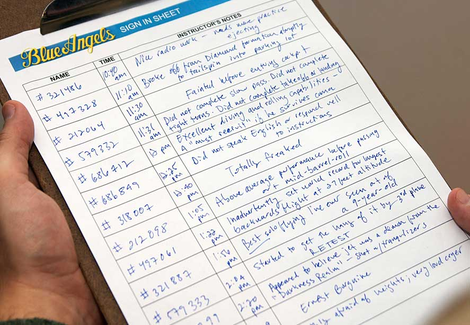 Blue Angels SIGN IN SHEET
NAME TIME INSTRUCTOR'S NOTES
# 321486 10:40 am Nice radio work – needs more practice
ejecting
# 492328 11:10 am Broke off from Diamond formation abruptly
to tailspin into parking lot
# 212064 11:30 am Fainted before entering cockpit
# 579332 11:36 Did not complete slow pass. Did not complete
tight turns. Did not complete takeoff or landing
# 686712 12 pm Excellent diving and rolling capabilities
A "must" if he survives coma
# 686849 12:25 Did not speak English or respond well
to instructions
# 318007 12:40 pm Totally freaked
# 212098 1:05 pm Above average performance before passing
out mid-barrel-roll
# 497061 1:20 pm Inadvertently set world record for longest
backwards flight at 27-foot altitude
# 321887 1:50 pm Best solo flying I've ever seen out of
a 9-year-old
# 579333 2:04 pm Started to get the hang of it by 3rd plane
RETEST
2:20 pm Appeared to believe jet was a demon from the
"Darkness Realm" – shot w/tranquilizers
Ernest Borgnine
afraid of heights, very loud crier